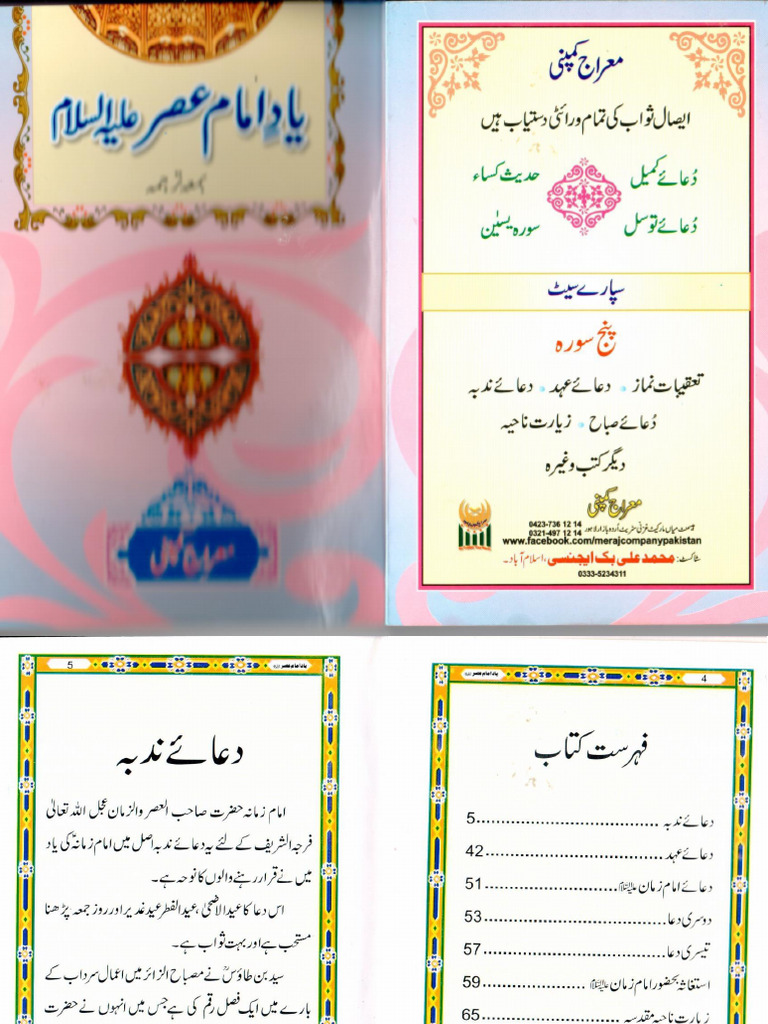 یادِ امام عصر علیہ السلام
بمعہ ترجمہ
معراج کمپنی
معراج کمپنی
ایصال ثواب کی تمام ورائٹی دستیاب ہیں
دُعائے کمیل حدیث کساء
دُعائے توسل سورہ یٰسین
سپارے سیٹ
پنج سورہ
تعقیبات نماز • دعائے عہد • دعائے ندبہ
دُعائے صباح • زیارت ناحیہ
دیگر کتب وغیرہ
معراج کمپنی
بیسمنٹ میاں مارکیٹ غزنی سٹریٹ اُردو بازار لاہور
0423-736 12 14
0321-497 12 14
www.facebook.com/merajcompanypakistan
محمد علی بک ایجنسی، اسلام آباد۔
0333-5234311
4 یاد امام عصر
فہرست کتاب
دعائے ندبہ ............ 5
دعائے عہد ............ 42
دعائے امام زمان علیہ السلام ............ 51
دوسری دعا ............ 53
تیسری دعا ............ 57
استغاثہ بحضور امام زمان علیہ السلام ............ 59
زیارت ناحیہ مقدسہ ............ 65
یاد امام عصر 5
دعائے ندبہ
امام زمانہ حضرت صاحب العصر والزمان عجل اللہ تعالیٰ
فرجہ الشریف کے لئے یہ دعائے ندبہ اصل میں امام زمانہ کی یاد
میں نے قرار رہنے والوں کا نوحہ ہے۔
اس دعا کا عید الاضحیٰ، عید الفطر عید غدیر اور روز جمعہ پڑھنا
مستحب ہے اور بہت ثواب ہے۔
سید بن طاؤسؒ نے مصباح الزائر میں اعمال سرداب کے
بارے میں ایک فصل رقم کی ہے جس میں انہوں نے حضرت